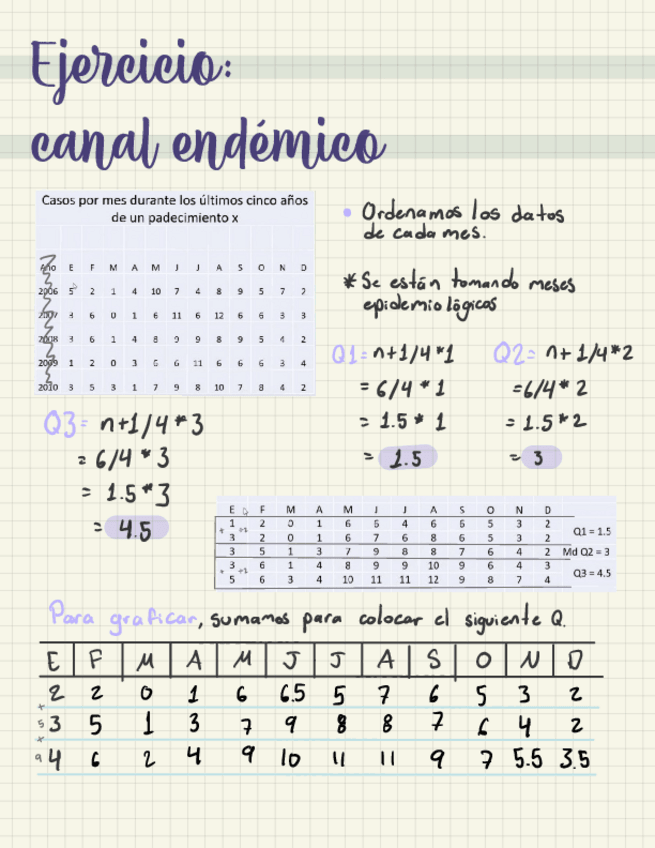 Ejercicio:
canal endémico
Casos por mes durante los últimos cinco años
de un padecimiento x
Año E F M A M J J A S O N D
2006 5 2 1 4 10 7 4 8 9 5 7 2
2007 3 6 0 1 6 11 6 12 6 6 3 3
2008 3 6 1 4 8 9 9 8 9 5 4 2
2009 1 2 0 3 6 6 11 6 6 6 3 4
2010 3 5 3 1 7 9 8 10 7 8 4 2
• Ordenamos los datos
de cada mes.
* Se están tomando meses
epidemiológicos
Q1= n+1/4*1
= 6/4 * 1
= 1.5 * 1
= 1.5
Q2= n+1/4*2
=6/4* 2
= 1.5*2
= 3
Q3= n+1/4*3
= 6/4 *3
= 1.5*3
= 4.5
E F M A M J J A S O N D
1 2 0 1 6 6 4 6 6 5 3 2
3 2 0 1 6 7 6 8 6 5 3 2
Q1 = 1.5
3 5 1 3 7 9 8 8 7 6 4 2 Md Q2 = 3
3 6 1 4 8 9 9 10 9 6 4 3
5 6 3 4 10 11 11 12 9 8 7 4
Q3 = 4.5
Para graficar, sumamos para colocar el siguiente Q.
E F M A M J J A S O N D
2 2 0 1 6 6.5 5 7 6 5 3 2
+
5 3 5 1 3 7 9 8 8 7 6 4 2
+
9 4 6 2 4 9 10 11 11 9 7 5.5 3.5